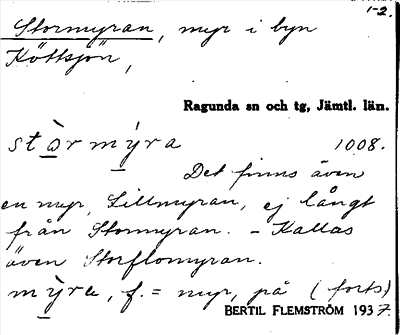 1-2.
Stormyran, myr i byn
Köttsjön,
Ragunda sn och tg, Jämtl. län.
stọ̀r mý̱ra 1008.
Det finns även
en myr, Lillmyran, ej långt
från Stormyran. - Kallas
även Storflomyran.
mỳ̱ra, f. = myr, på (forts)
BERTIL FLEMSTRÖM 1937.